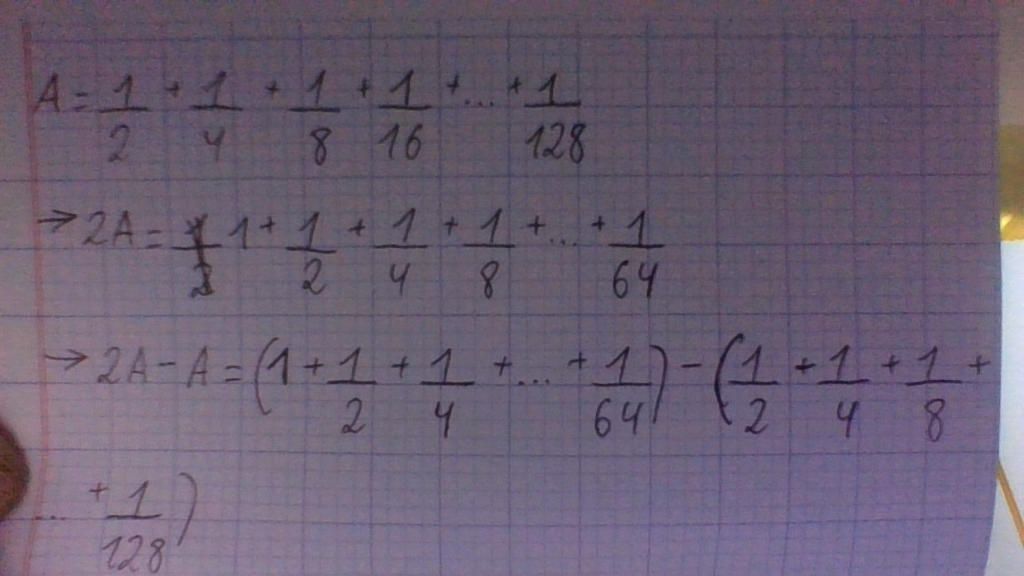 A = 1/2 + 1/4 + 1/8 + 1/16 + ... + 1/128
→ 2A = 1 + 1/2 + 1/4 + 1/8 + ... + 1/64
→ 2A - A = (1 + 1/2 + 1/4 + ... + 1/64) - (1/2 + 1/4 + 1/8 +
... + 1/128)